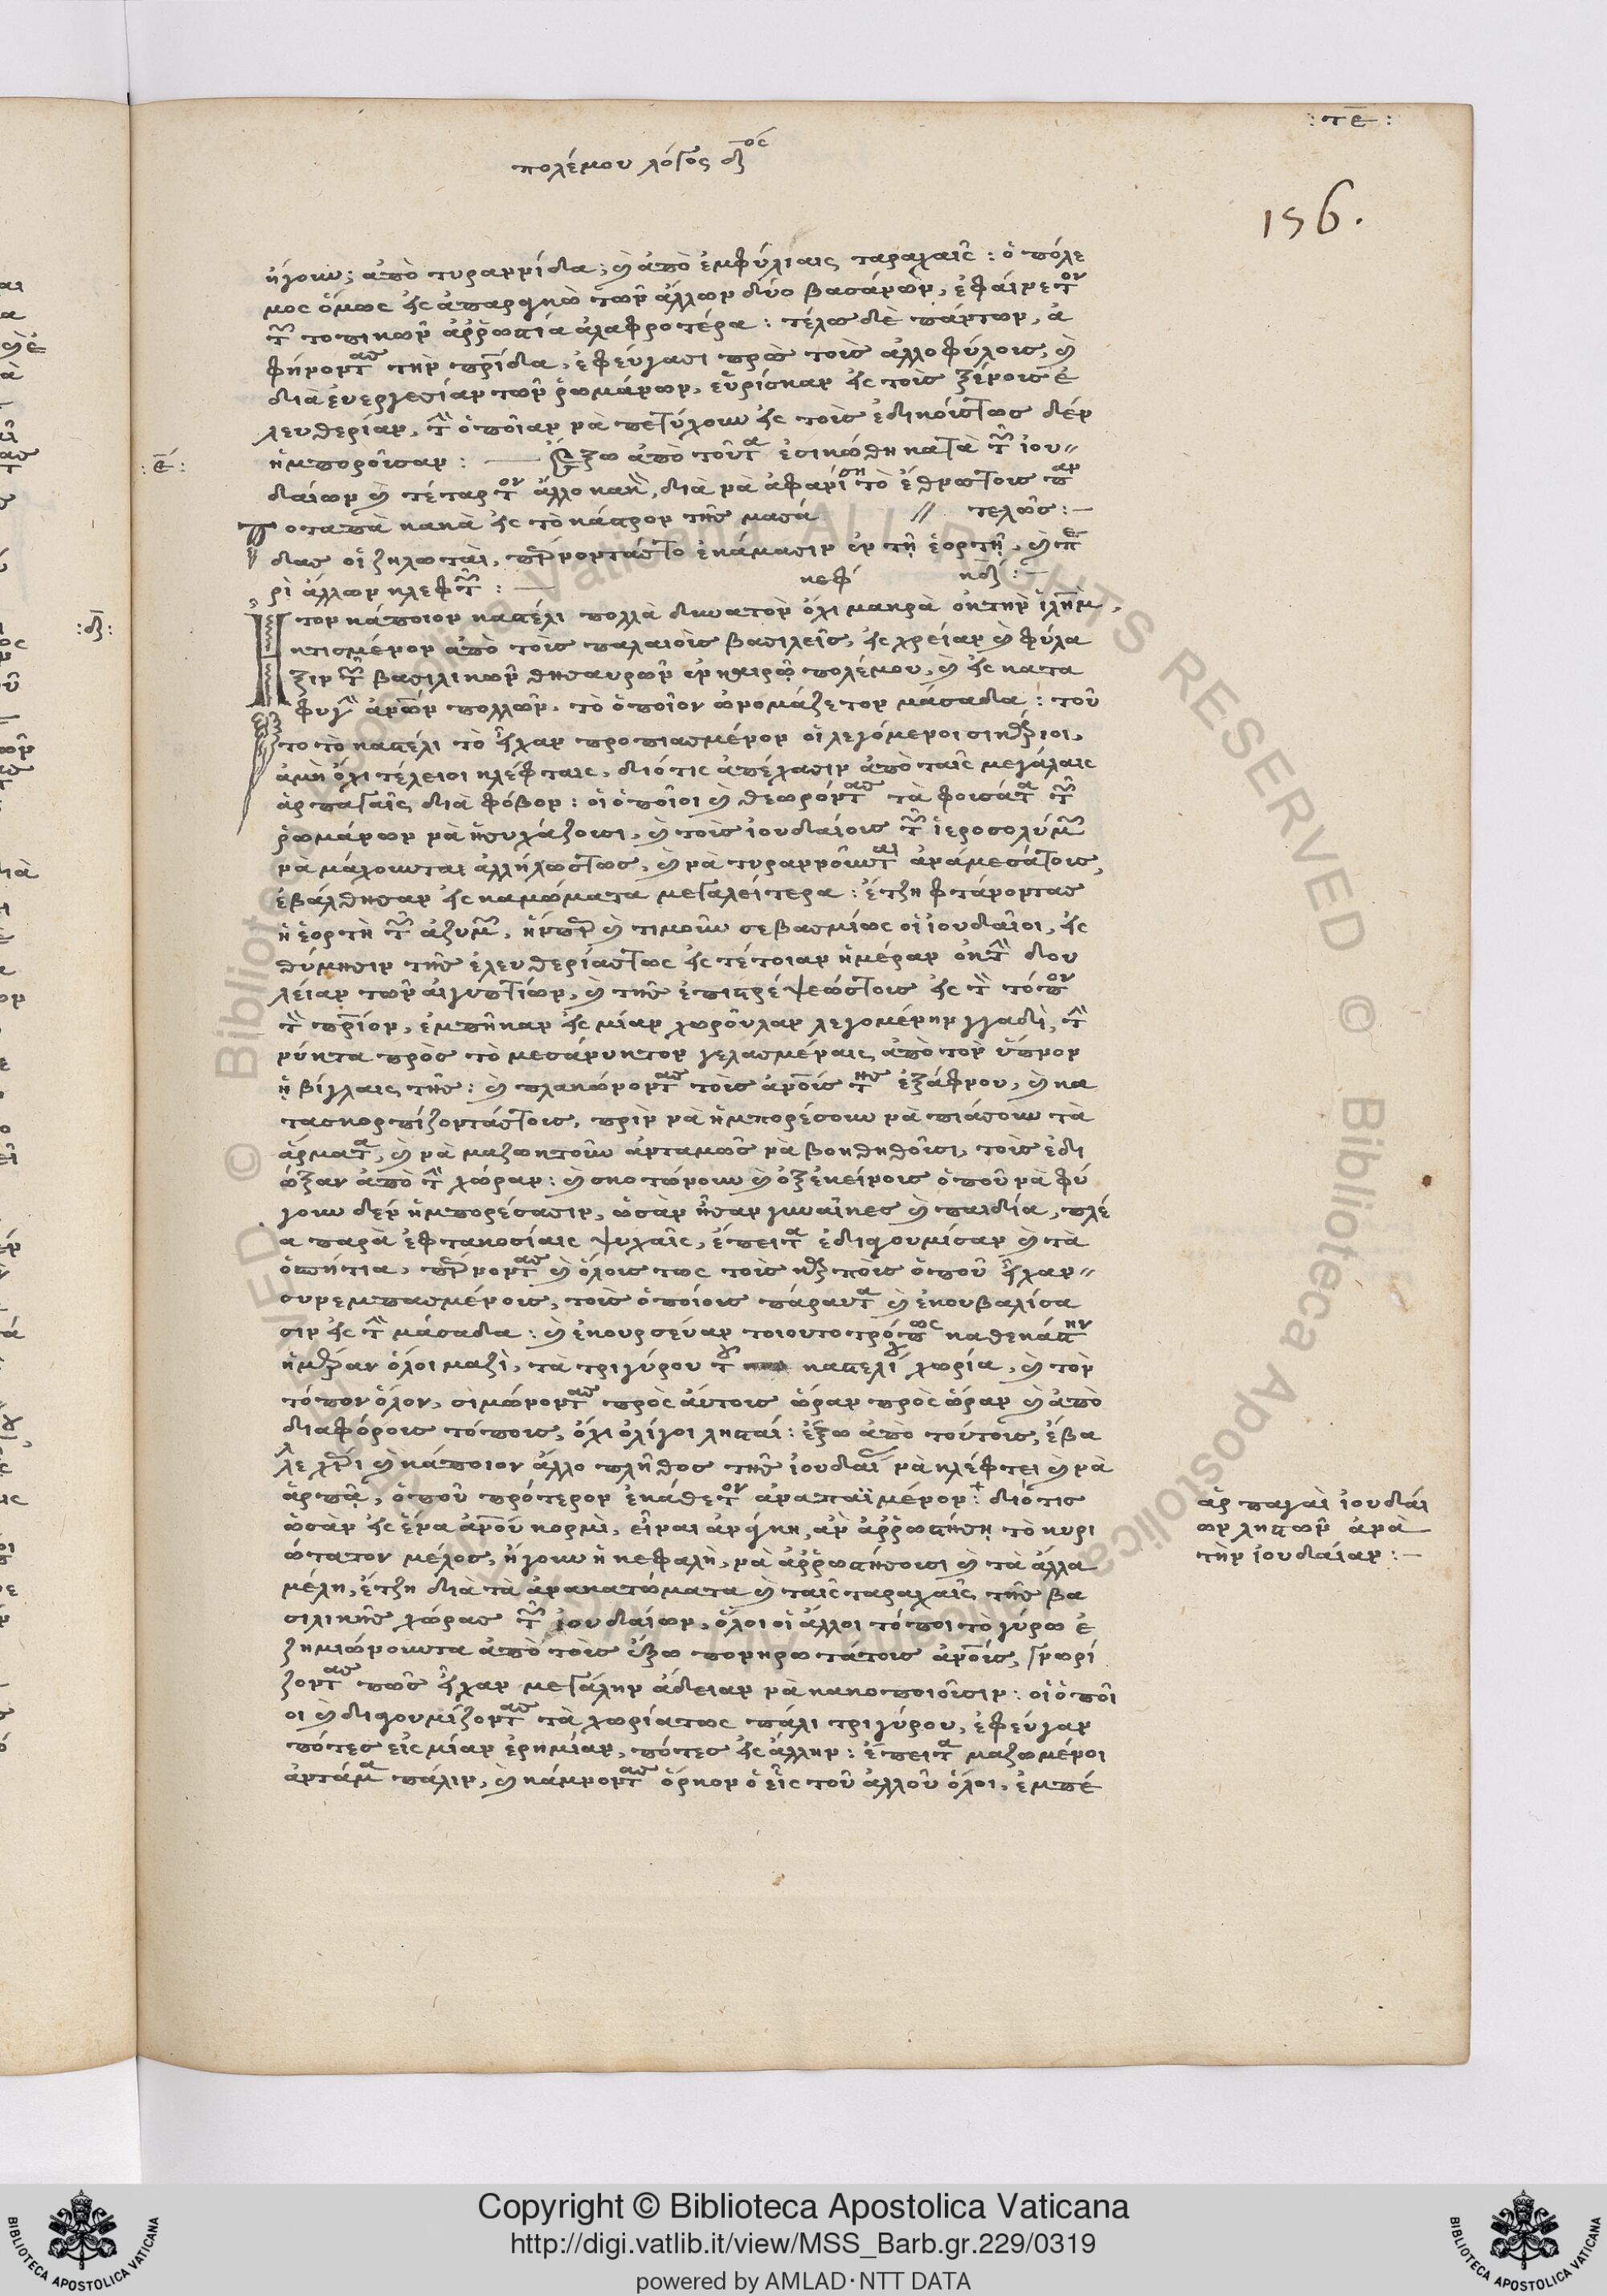 : τε :
πολέμου λόγος δ ος
156.
ἤγουν; ἀπὸ τυραννίδα; καὶ ἀπὸ ἐμφύλιαις ταραχαῖς : ὁ πόλε
μος ὅμως εἰς τῶν ἄλλων δύο βασάνων, ἐφαίνετον
τῶν τοπικῶν ἀῤῥωστία ἀλαφροτέρα : τέλος δὲ πάντων, ἀ
φήνοντας τὴν πρίδα, ἐφεύγασι πρὸς τοὺς ἀλλοφύλους, καὶ
διὰ ἐνεργεσίαν τῶν ῥωμάνων, εὕρισκαν εἰς τοὺς ξένους ἐ
λευθερίαν, τὴν ὁποῖαν νὰ πετύχουν εἰς τοὺς ἐδικούστως δέν
: ε : ἠμποροῦσαν : — ἔξω ἀπὸ τοῦτα ἐσικώθη κατὰ τῶν ἰου
δαίων καὶ τέταρτον ἄλλο κακὸν, διὰ νὰ ἀφανίσῃ τὸ ἔθνοςτους παν
τελῶς : —
Ποταπὰ κακὰ εἰς τὸ κάστρον τῆς μασά
δας οἱ ζηλωταὶ, πέρνοντάςτο ἐκάμασιν ἐν τῇ ἑορτῇ, καὶ πε
ρὶ ἄλλων κλεφτῶν : — κεφ κδ : —
: δ : Ἦτον κάποιον καστέλι πολλὰ δυνατὸν ὄχι μακρὰ ἐκ τὴν ἱλημ,
κτισμένον ἀπὸ τοὺς παλαιοὺς βασιλεῖς, εἰς χρείαν καὶ φύλα
ξιν τῶν βασιλικῶν θησαυρῶν ἐν καιρῷ πολέμου, καὶ εἰς κατα
φυγὴν ἀνων πολλῶν, τὸ ὁποῖον ὠνομάζετον μάσαδα : τοῦ
το τὸ καστέλι τὸ εἶχαν προπιασμένον οἱ λεγόμενοι σικάριοι,
ἀμὴ ὄχι τέλειοι κλέφταις, διότις ἀπέχασιν ἀπὸ ταῖς μεγάλαις
ἁρπαγαῖς διὰ φόβον : οἱ ὁποῖοι καὶ θεωρόντας τὰ φουσάτα τῶν
ῥωμάνων νὰ ἡσυχάζουσι, καὶ τοὺς ἰουδαίους τῶν ἱεροσολύμων
νὰ μάχουνται ἀλλήλωςτως, καὶ νὰ τυραννοῦνται ἀνάμεσάτους,
ἐβάλθησαν εἰς καμώματα μεγαλείτερα : ἔτζη φτάνοντας
ἡ ἑορτὴ τῶν ἀζύμων, ἥνπερ καὶ τιμοῦν σεβασμίως οἱ ἰουδαῖοι, εἰς
θύμησιν τῆς ἐλευθερίαςτως εἰς τέτοιαν ἡμέραν ἐκ τὴν δου
λείαν τῶν αἰγυπτίων, καὶ τῆς ἐπιστρέψεώςτους εἰς τὸν τόπον
τὸν πριον, ἐμπῆκαν εἰς μίαν χωροῦλαν λεγομένην γγαδὶ, τὴν
νύκτα πρὸς τὸ μεσάνυκτον γελασμέναις ἀπὸ τὸν ὕπνον
ἡ βίγλαις της : καὶ πλακώνοντας τοὺς ἀνους της ἐξάφνου, καὶ κα
τασκορπίζοντάςτους, πρὶν νὰ ἠμπορέσουν νὰ πιάσουν τὰ
ἄρματα, καὶ νὰ μαζωκτοῦν ἀνταμῶς νὰ βοηθηθοῦσι, τοὺς ἐδι
ώξαν ἀπὸ τὴν χώραν : καὶ σκοτώνουν καὶ ὀξ ἐκείνους ὁποῦ νὰ φύ
γουν δὲν ἠμπορέσασιν, ὡσὰν ἦσαν γυναῖκες καὶ παιδία, πλέ
α παρὰ ἑφτακοσίαις ψυχαῖς, ἔπειτα ἐδιγουμίσαν καὶ τὰ
ὁσπήτια, πέρνοντας καὶ ὅλους τως τοὺς καρποὺς ὁποῦ εἶχαν
συνεμπασμένους, τοὺς ὁποίους πάραυτα καὶ ἐκουβαλίσα
σιν εἰς τὴν μάσαδα : καὶ ἐκουρσεύαν τοιουτοτρόπως καθεκάστην
ἡμέραν ὅλοι μαζὶ, τὰ τριγύρου τοῦ καστελίου χωρία, καὶ τὸν
τόπον ὅλον, σιμώνοντας πρὸς αὐτους ὥραν πρὸς ὥραν καὶ ἀπὸ
διαφόρους τόπους, ὄχι ὀλίγοι λησταί : ἔξω ἀπὸ τούτους, ἔβα
λε χέρι καὶ κάποιον ἄλλο πλῆθος τῆς ἰουδαίας νὰ κλέφτει καὶ νὰ
ἁρπᾷ, ὁποῦ πρότερον ἐκάθετον ἀναπαϊμένον : διότις
ὡσὰν εἰς ἕνα ἀνου κορμὶ, εἶναι ἀνάγκη, ἂν ἀῤῥωστήσῃ τὸ κυρι
ώτατον μέλος, ἤγουν ἡ κεφαλὴ, νὰ ἀῤῥωστήσουσι καὶ τὰ ἄλλα
μέλη, ἔτζη διὰ τὰ ἀνακατώματα καὶ ταῖς ταραχαῖς τῆς βα
σιλικῆς χώρας τῶν ἰουδαίων, ὅλοι οἱ ἄλλοι τόποι τὸ γύρω ἐ
ζημιώνουντα ἀπὸ τοὺς ἔξω πονηρωτάτους ἀνους, γνωρί
ζοντας πῶς εἶχαν μεγάλην ἄδειαν νὰ κακοποιοῦσιν : οἱ ὁποῖ
οι καὶ διγουμίζοντας τὰ χωρίατως πάλι τριγύρου, ἐφεύγαν
πότες εἰς μίαν ἐρημίαν, πότες εἰς ἄλλην : ἔπειτα μαζωμένοι
ἀντάμα πάλιν, καὶ κάμνοντας ὅρκον ὁ εἷς τοῦ ἀλλοῦ ὅλοι, ἐμπέ
ἁρπαγαὶ ἰουδαί
ων ληστῶν ἀνὰ
τὴν ἰουδαίαν : —
Copyright © Biblioteca Apostolica Vaticana
http://digi.vatlib.it/view/MSS_Barb.gr.229/0319
powered by AMLAD·NTT DATA